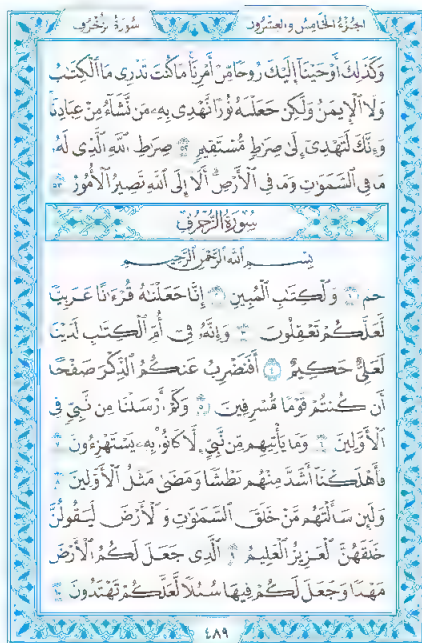 الجزء الخامس والعشرون سورة زخرف
وَكَذَٰلِكَ أَوْحَيْنَا إِلَيْكَ رُوحًا مِّنْ أَمْرِنَا مَا كُنتَ تَدْرِى مَا الْكِتَٰبُ
وَلَا الْإِيمَٰنُ وَلَٰكِن جَعَلْنَٰهُ نُورًا نَّهْدِى بِهِۦ مَن نَّشَآءُ مِنْ عِبَادِنَا
وَإِنَّكَ لَتَهْدِىٓ إِلَىٰ صِرَٰطٍ مُّسْتَقِيمٍ ٥٢ صِرَٰطِ اللَّهِ الَّذِى لَهُۥ
مَا فِى السَّمَٰوَٰتِ وَمَا فِى الْأَرْضِ أَلَآ إِلَى اللَّهِ تَصِيرُ الْأُمُورُ ٥٣
سُورَةُ الزُّخْرُفِ
بِسْمِ اللَّهِ الرَّحْمَٰنِ الرَّحِيمِ
حمٓ ١ وَالْكِتَٰبِ الْمُبِينِ ٢ إِنَّا جَعَلْنَٰهُ قُرْءَٰنًا عَرَبِيًّا
لَّعَلَّكُمْ تَعْقِلُونَ ٣ وَإِنَّهُۥ فِىٓ أُمِّ الْكِتَٰبِ لَدَيْنَا
لَعَلِىٌّ حَكِيمٌ ٤ أَفَنَضْرِبُ عَنكُمُ الذِّكْرَ صَفْحًا
أَن كُنتُمْ قَوْمًا مُّسْرِفِينَ ٥ وَكَمْ أَرْسَلْنَا مِن نَّبِىٍّ فِى
الْأَوَّلِينَ ٦ وَمَا يَأْتِيهِم مِّن نَّبِىٍّ إِلَّا كَانُوا بِهِۦ يَسْتَهْزِءُونَ ٧
فَأَهْلَكْنَآ أَشَدَّ مِنْهُم بَطْشًا وَمَضَىٰ مَثَلُ الْأَوَّلِينَ ٨
وَلَئِن سَأَلْتَهُم مَّنْ خَلَقَ السَّمَٰوَٰتِ وَالْأَرْضَ لَيَقُولُنَّ
خَلَقَهُنَّ الْعَزِيزُ الْعَلِيمُ ٩ الَّذِى جَعَلَ لَكُمُ الْأَرْضَ
مَهْدًا وَجَعَلَ لَكُمْ فِيهَا سُبُلًا لَّعَلَّكُمْ تَهْتَدُونَ ١٠
٤٨٩